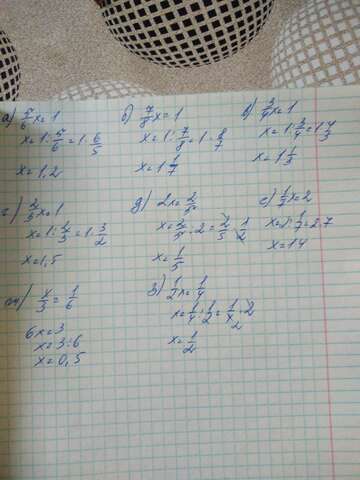 а) 5/6 x = 1
x = 1 : 5/6 = 1 · 6/5
x = 1,2
б) 7/8 x = 1
x = 1 : 7/8 = 1 · 8/7
x = 1 1/7
в) 3/4 x = 1
x = 1 : 3/4 = 1 · 4/3
x = 1 1/3
г) 2/3 x = 1
x = 1 : 2/3 = 1 · 3/2
x = 1,5
д) 2x = 2/5
x = 2/5 : 2 = 2/5 · 1/2
x = 1/5
е) 1/7 x = 2
x = 2 : 1/7 = 2 · 7
x = 14
ж) x/3 = 1/6
6x = 3
x = 3 : 6
x = 0,5
з) 1/2 x = 1/4
x = 1/4 : 1/2 = 1/4 · 2
x = 1/2